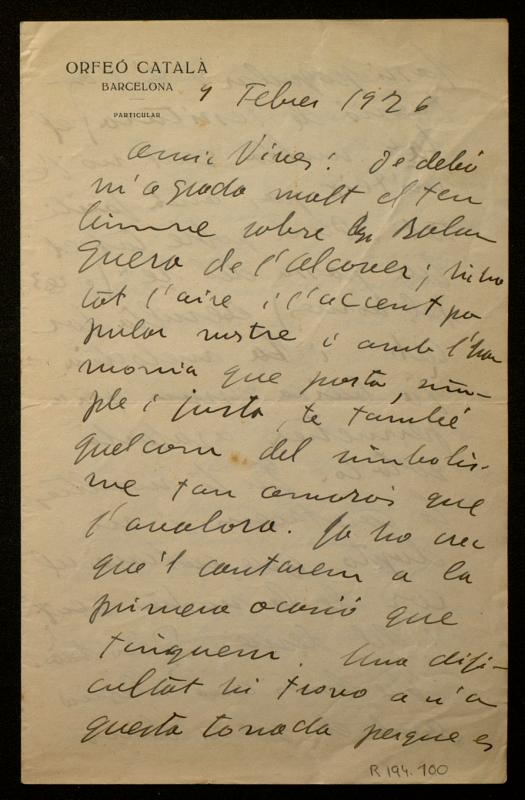 ORFEÓ CATALÀ
BARCELONA
PARTICULAR
9 Febrer 1926
Amic Vives: De debó
m'agrada molt el teu
himne sobre La Balan
guera de l'Alcover; hi ha
tot l'aire i l'accent po
pular nostre i amb l'har
monia que porta, sim-
ple i justa, te també
quelcom del simbolis-
me tan amorós que
l'avalora. Ja ho crec
que'l cantarem a la
primera ocasió que
tinguem. Una difi-
cultat hi trovo a n'a
questa tonada perque es
R 194.100